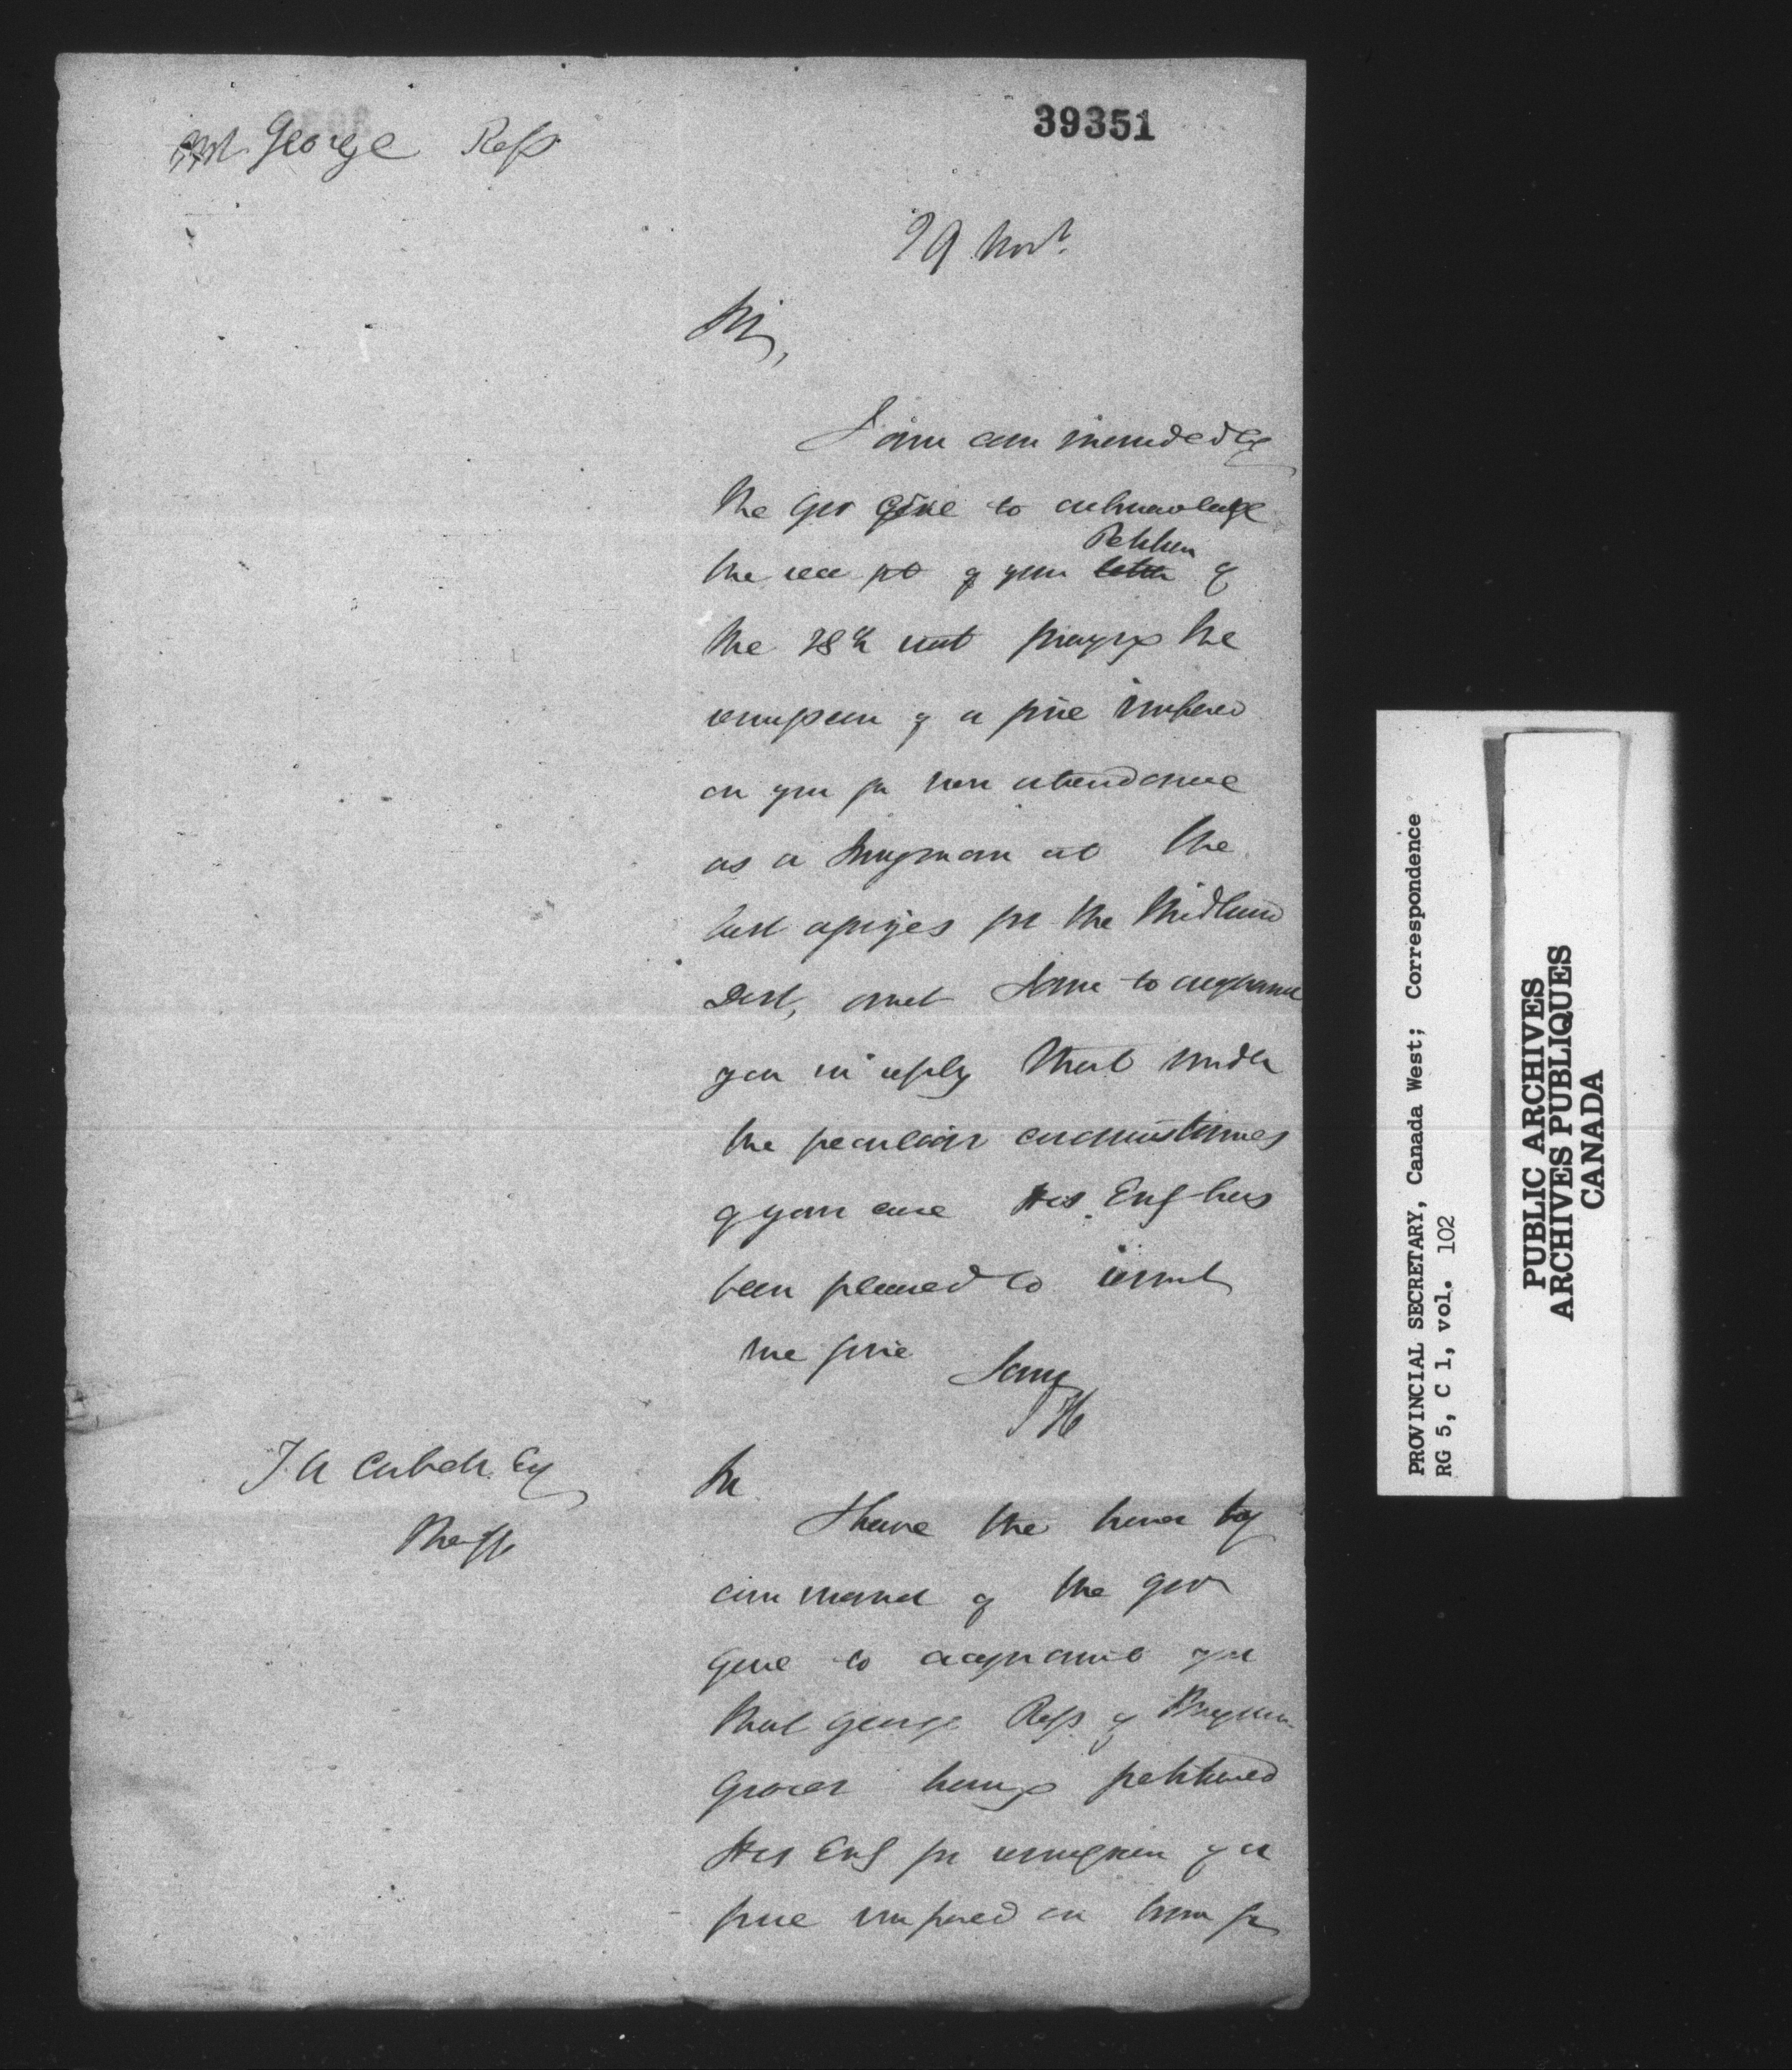 39351
George Ross
29 Novr.
Sir,
I am commanded by
the Gov Genl to acknowledge
the receipt of your letter Petition of
the 28th inst praying the
remission of a fine imposed
on you for non attendance
as a Juryman at the
last assizes for the Midland
Dist, and I have to acquaint
you in reply that under
the peculiar circumstances
of your case His Exc has
been pleased to remit
the fine
I am
T A Corbett Esq
Sheriff
Sir
I have the honor by
command of the Gov
Genl to acquaint you
that George Ross of Kingston
Grocer having petitioned
His Exc for remission of a
fine imposed on him for
PROVINCIAL SECRETARY, Canada West; Correspondence
RG 5, C 1, vol. 102
PUBLIC ARCHIVES
ARCHIVES PUBLIQUES
CANADA